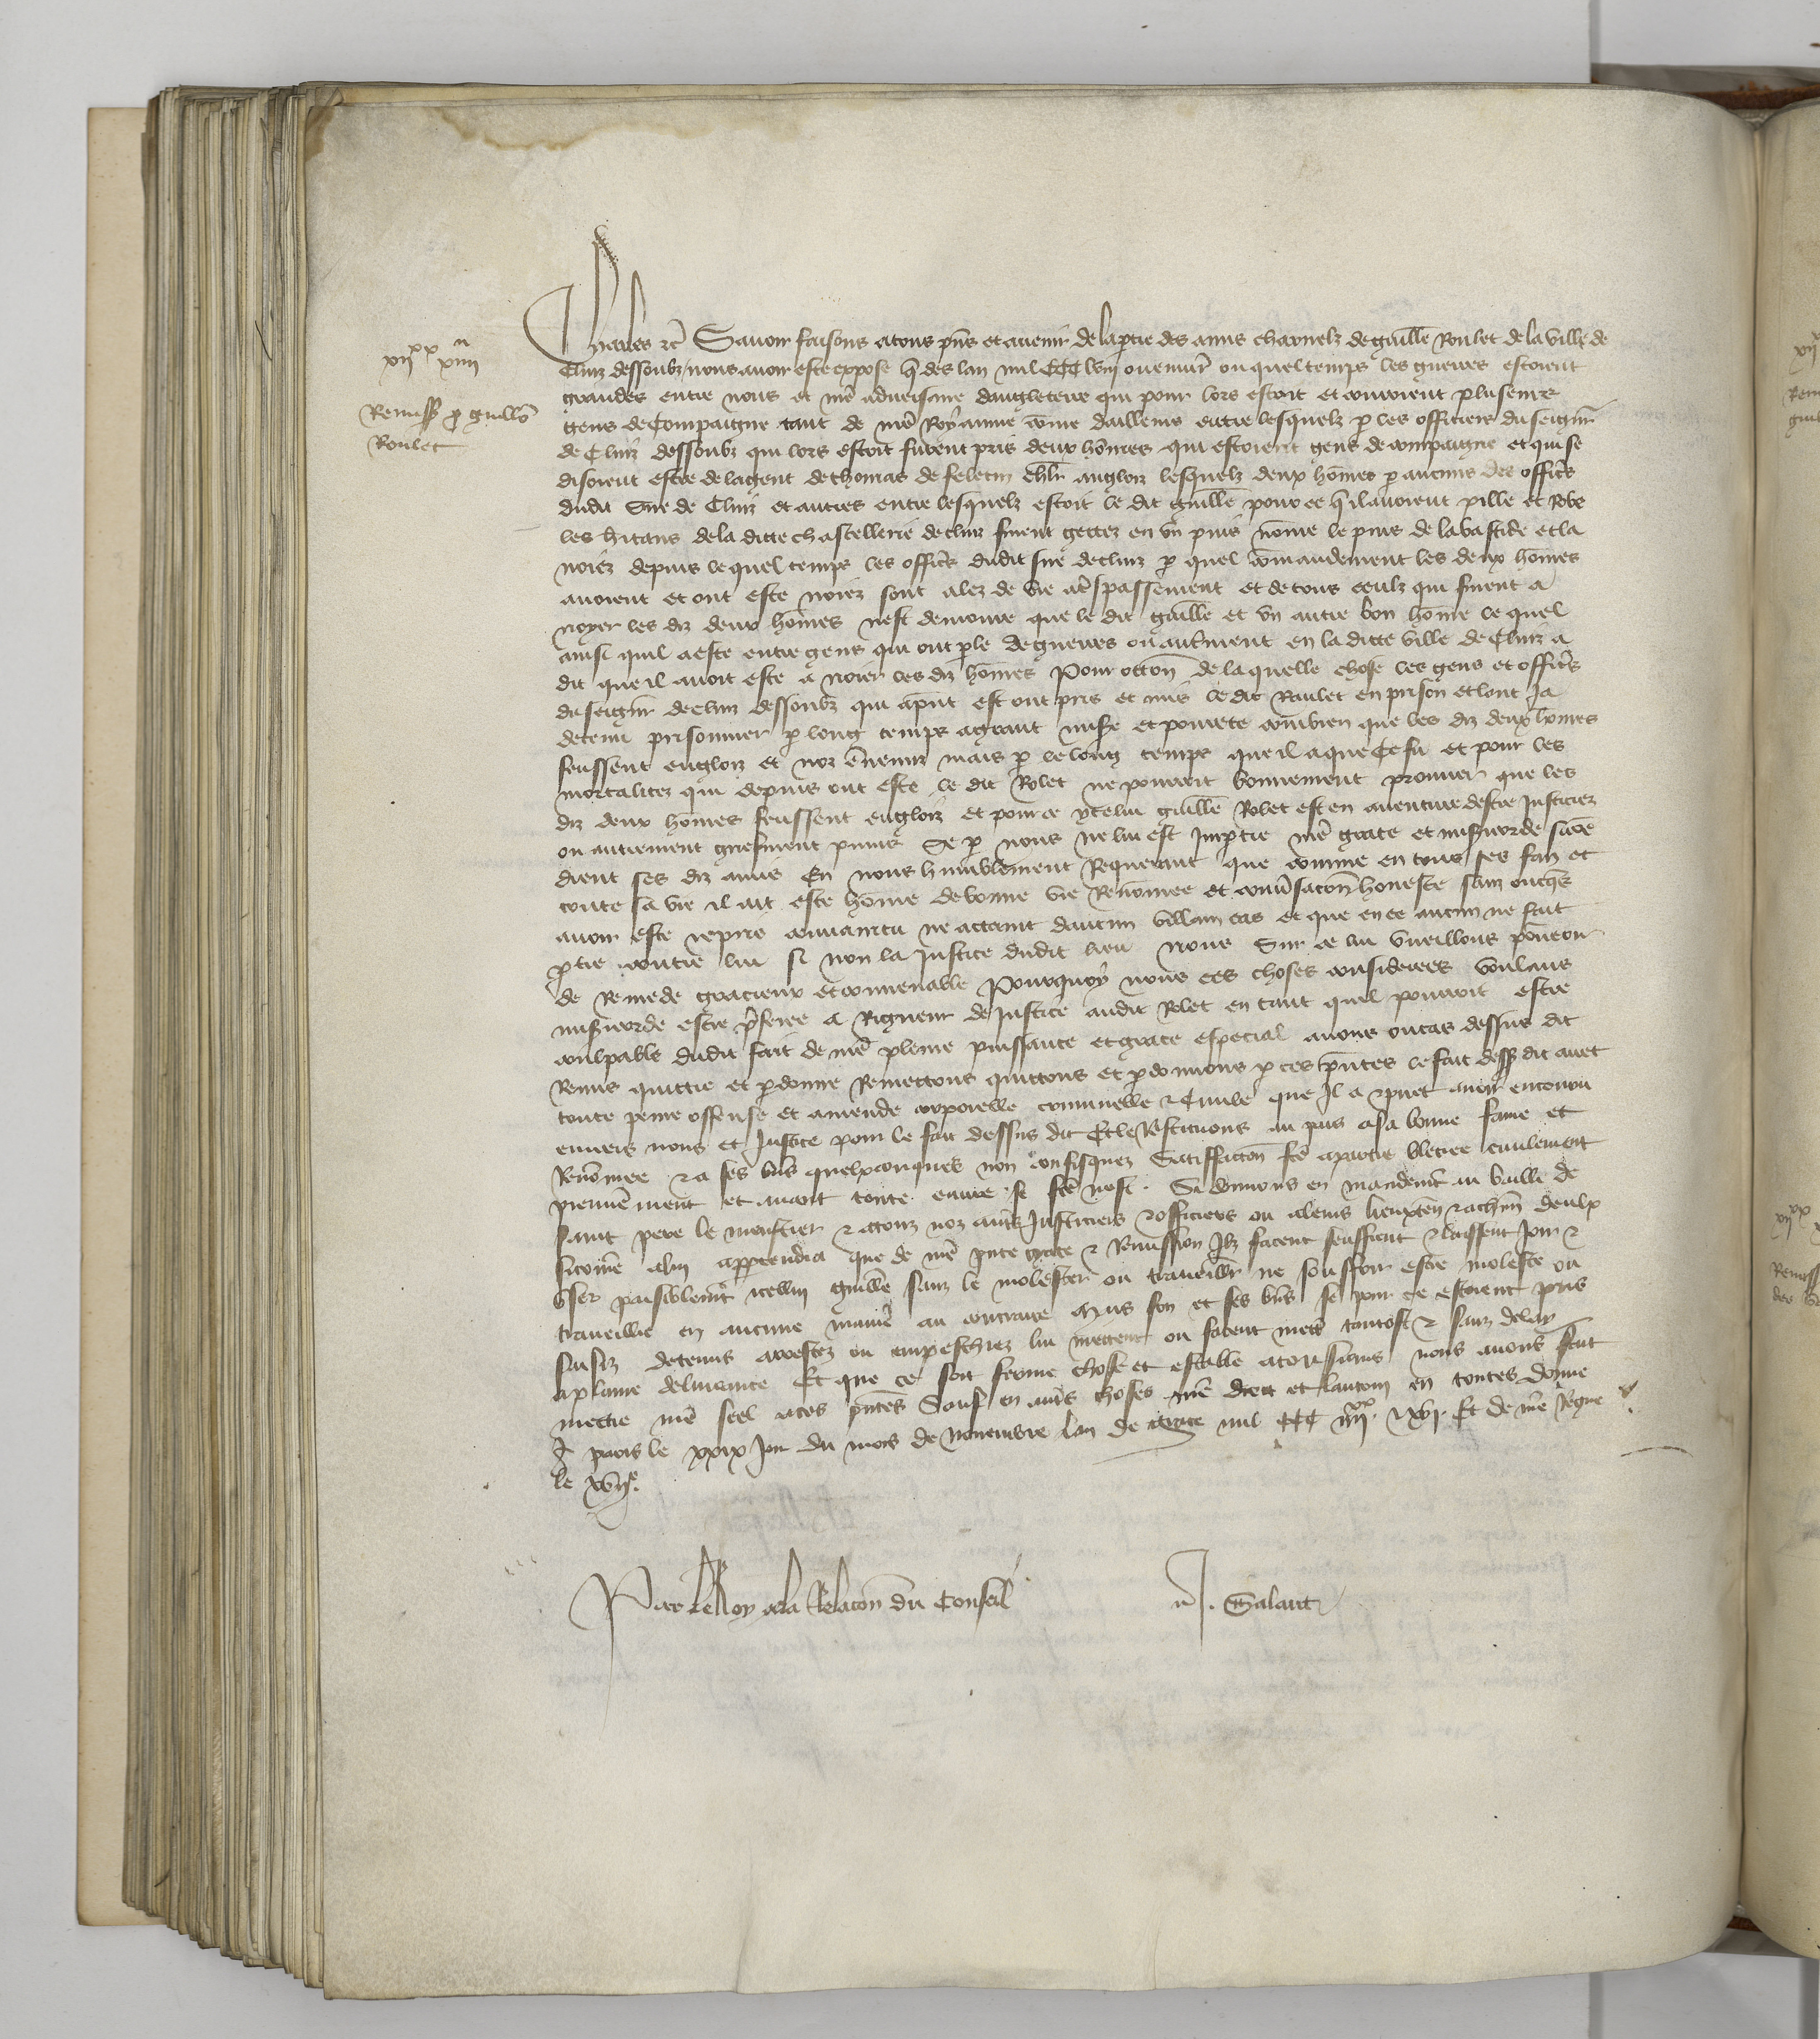 xii xx xiiii
Remiss p Guillo
Roulet
Charles etc Savoir faisons atous pns et avenir de la ptie des amis charnelz de Guille Roulet de la ville de
Cluiz dessoubz nous avoir este expose q des lan mil CCC lviii ou envir ou quel temps les guerres estoient
grandes entre nous et nre adversaire dangleterre qui pour lors estoit et couroient plusieurs
gens de Compaigne tant de nre Royaume come dailleurs entre lesquelz p les officiers du seignr
de Cluiz dessoubz qui lors estoit furent pris deux homes qui estoient gens de compaigne et qui se
disoient estre de la gent de thomas de feleton chlr anglois lesquelz deux homes p aucuns des offics
dudit Sire de Cluiz et autres entre lesquelz estoit le dit Guille pour ce q il avoient pille et Robe
les hitans de la ditte chastellerie de cluiz furent gettez en un puis nome le puis de la bastide et la
noiez depuis le quel temps les offics dudit sire de cluiz p quel comandement les deux homes
avoient et ont este noiez sont alez de vie a trespassement et de tous ceulz qui furent a
noyer les diz deux homes nest demoure que le dit Guille et un autre bon home le quel
ainsi quil a este entre gens qui ont ple de guerres ou autrement en la ditte ville de Cluiz a
dit que il avoit este a noier les diz homes Pour occon de la quelle chose les gens et offics
du seignr de cluiz dessoubz qui apnt est ont pris et mis le dit Roulet en prison et lont ja
detenu prisonnier p long temps a grant misere et povrete combien que les diz deux homes
feussent englois et noz ennemis mais p le long temps que il a que ce fu et pour les
mortalitez qui depuis ont este le dit Rolet ne pourroit bonnement prouver que les
diz deux homes feussent englois et pour ce ycelui guille Rolet est en aventure destre justiciez
ou autrement griefment puniz Se p nous ne lui est Imptie nre grace et misicorde sicoe
dient ses diz amis En nous humblement Requerant que comme en tous ses faiz et
toute sa vie il ait este home de bonne vie Renomee et conversacon honeste sanz onques
avoir este repris convaincu ne attaint daucun villain cas et que en ce aucun ne fait
ptie contre lui si non la justice dudit lieu nous Sur ce lui vueillons pourveoir
de Remede gracieux et convenable Pourquoy nous ces choses considerees voulans
misicorde estre pferee a Rigueur de justice audit Rolet en tant quil pourroit estre
coulpable dudit fait de nre pleine puissance et grace especial avons ou cas dessus dit
Remis quittie et pdonne Remettons quittons et pdonnons p ces pntes le fait dess dit avec
toute peine offense et amende corporelle criminelle et Civile que Il a et puet avoir encouru
envers nous et Justice pour le fait dessus dit Et le Restituons au pais a sa bonne fame et
Renomee et a ses bns quelxconques non confisquez Satisffaccon fte a partie blecee civilement
premierement et avant toute euvre se fte nest Si donnons en mandemt au bailli de
saint pere le moustier et a touz noz autres Justiciers et officiers ou a leurs lieuxten et a chun deulx
sicome a lui apptendra que de nre pnte grace et Remission Ilz facent seuffrent et laissent joir et
User paisiblemt icellui guille sanz le molester ou traveillr ne souffrir estre moleste ou
traveillie en aucune maniere au contraire Mais son et ses bns se pour ce estoient pris
saisiz detenus arrestez ou empeschiez lui mettent ou facent mettre tantost et sanz delay
a plaine delivrance Et que ce soit ferme chose et estable a tousjours nous avons fait
mettre nre seel a ces pntes Sauf en autres choses nre droit et lautrui en toutes Donne
A paris le xxix Jour du mois de Novembre lan de grace mil CCC IIIIxx et xvi Et de nre Regne
le xviie
Par le Roy a la Relacion du Conseil J. Salaut